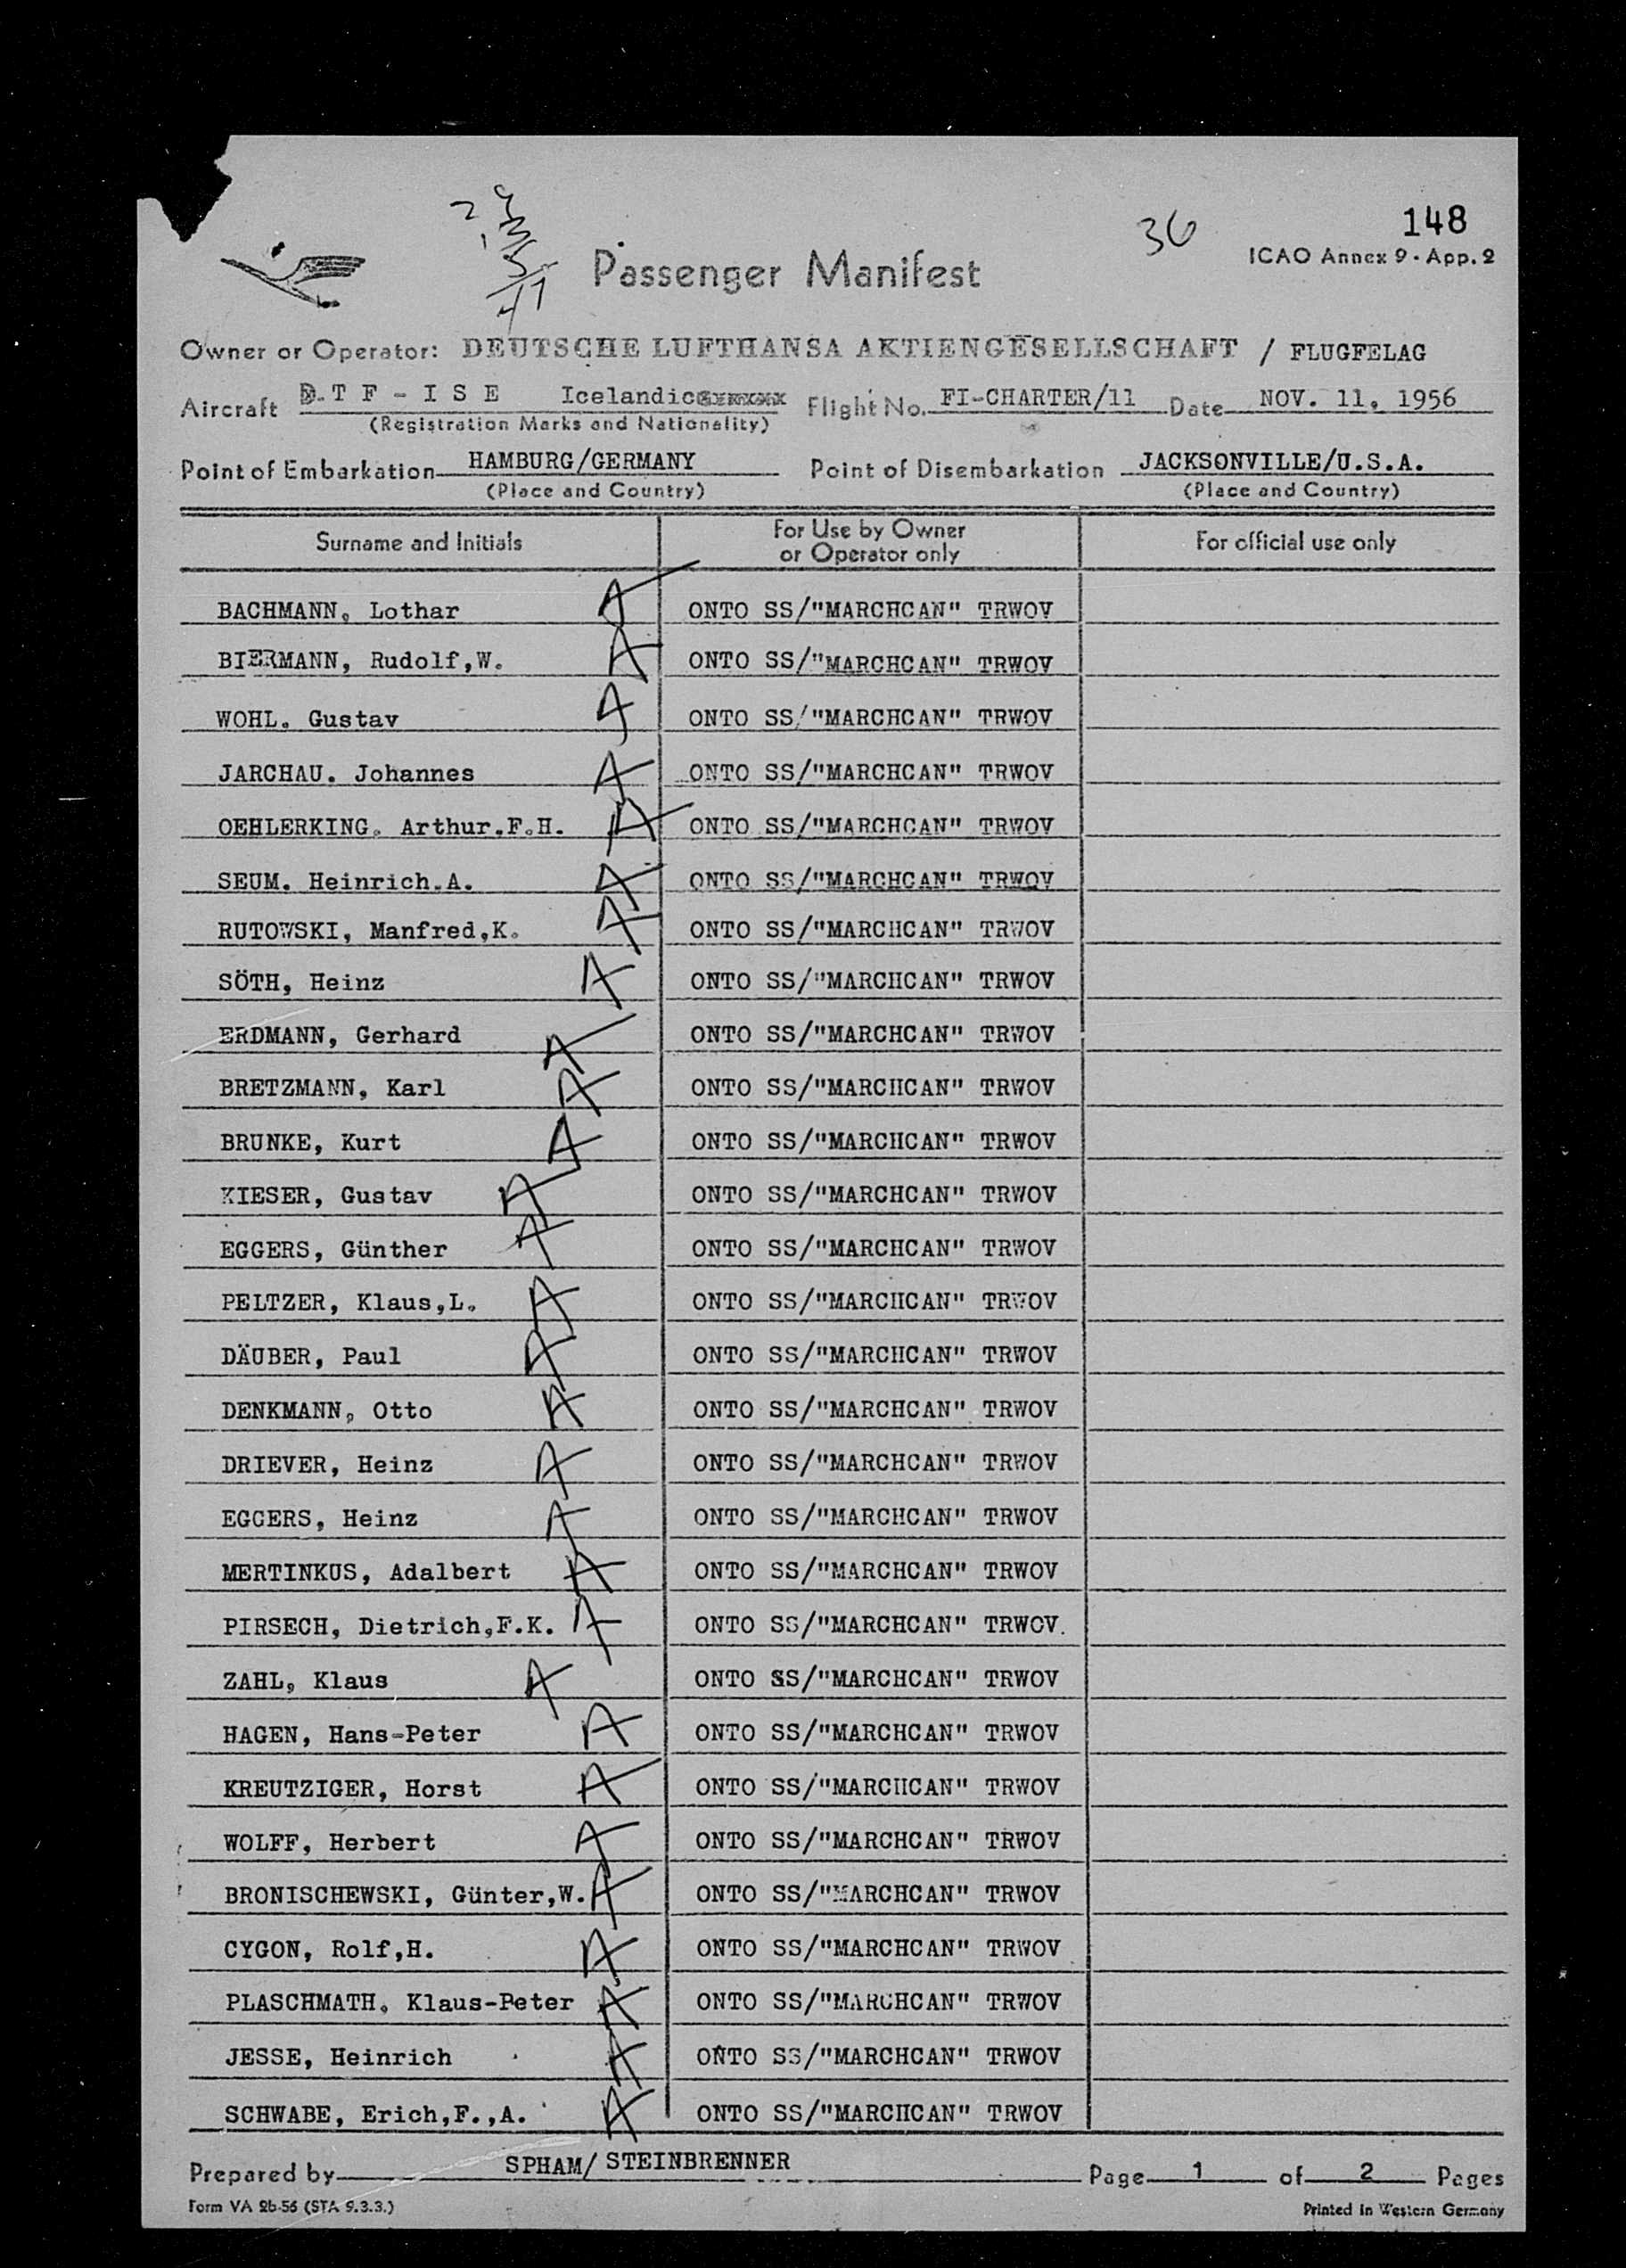 36
148
ICAO Annex 9 - App. 2
Passenger Manifest
Owner or Operator: DEUTSCHE LUFTHANSA AKTIENGESELLSCHAFT / FLUGFELAG
Aircraft TF-ISE Icelandic Flight No. FI-CHARTER/11 Date NOV. 11, 1956
(Registration Marks and Nationality)
Point of Embarkation HAMBURG/GERMANY Point of Disembarkation JACKSONVILLE/U.S.A.
(Place and Country) (Place and Country)
Surname and Initials For Use by Owner or Operator only For official use only
BACHMANN, Lothar A ONTO SS/"MARCHCAN" TRWOV
BIERMANN, Rudolf,W. A ONTO SS/"MARCHCAN" TRWOV
WOHL. Gustav A ONTO SS/"MARCHCAN" TRWOV
JARCHAU. Johannes A ONTO SS/"MARCHCAN" TRWOV
OEHLERKING. Arthur.F.H. A ONTO SS/"MARCHCAN" TRWOV
SEUM. Heinrich.A. A ONTO SS/"MARCHCAN" TRWOV
RUTOWSKI, Manfred,K. A ONTO SS/"MARCHCAN" TRWOV
SÖTH, Heinz A ONTO SS/"MARCHCAN" TRWOV
ERDMANN, Gerhard A ONTO SS/"MARCHCAN" TRWOV
BRETZMANN, Karl A ONTO SS/"MARCHCAN" TRWOV
BRUNKE, Kurt A ONTO SS/"MARCHCAN" TRWOV
KIESER, Gustav A ONTO SS/"MARCHCAN" TRWOV
EGGERS, Günther A ONTO SS/"MARCHCAN" TRWOV
PELTZER, Klaus,L. A ONTO SS/"MARCHCAN" TRWOV
DÄUBER, Paul A ONTO SS/"MARCHCAN" TRWOV
DENKMANN, Otto A ONTO SS/"MARCHCAN" TRWOV
DRIEVER, Heinz A ONTO SS/"MARCHCAN" TRWOV
EGGERS, Heinz A ONTO SS/"MARCHCAN" TRWOV
MERTINKUS, Adalbert A ONTO SS/"MARCHCAN" TRWOV
PIRSECH, Dietrich,F.K. A ONTO SS/"MARCHCAN" TRWOV.
ZAHL, Klaus A ONTO SS/"MARCHCAN" TRWOV
HAGEN, Hans-Peter A ONTO SS/"MARCHCAN" TRWOV
KREUTZIGER, Horst A ONTO SS/"MARCHCAN" TRWOV
WOLFF, Herbert A ONTO SS/"MARCHCAN" TRWOV
BRONISCHEWSKI, Günter,W. A ONTO SS/"MARCHCAN" TRWOV
CYGON, Rolf,H. A ONTO SS/"MARCHCAN" TRWOV
PLASCHMATH, Klaus-Peter A ONTO SS/"MARCHCAN" TRWOV
JESSE, Heinrich A ONTO SS/"MARCHCAN" TRWOV
SCHWABE, Erich,F.,A. A ONTO SS/"MARCHCAN" TRWOV
Prepared by SPHAM/ STEINBRENNER Page 1 of 2 Pages
Form VA 2b-56 (STA 9.3.3.) Printed in Western Germany